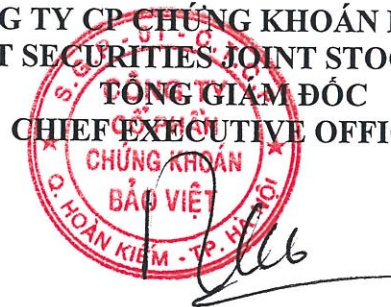 G TY CP CHỨNG KHOÁN
T SECURITIES JOINT STO
TỔNG GIÁM ĐỐC
CHIEF EXECUTIVE OFFI
CÔNG TY
CỔ PHẦN
CHỨNG KHOÁN
BẢO VIỆT
Q. HOÀN KIẾM - T.P. HÀ NỘI